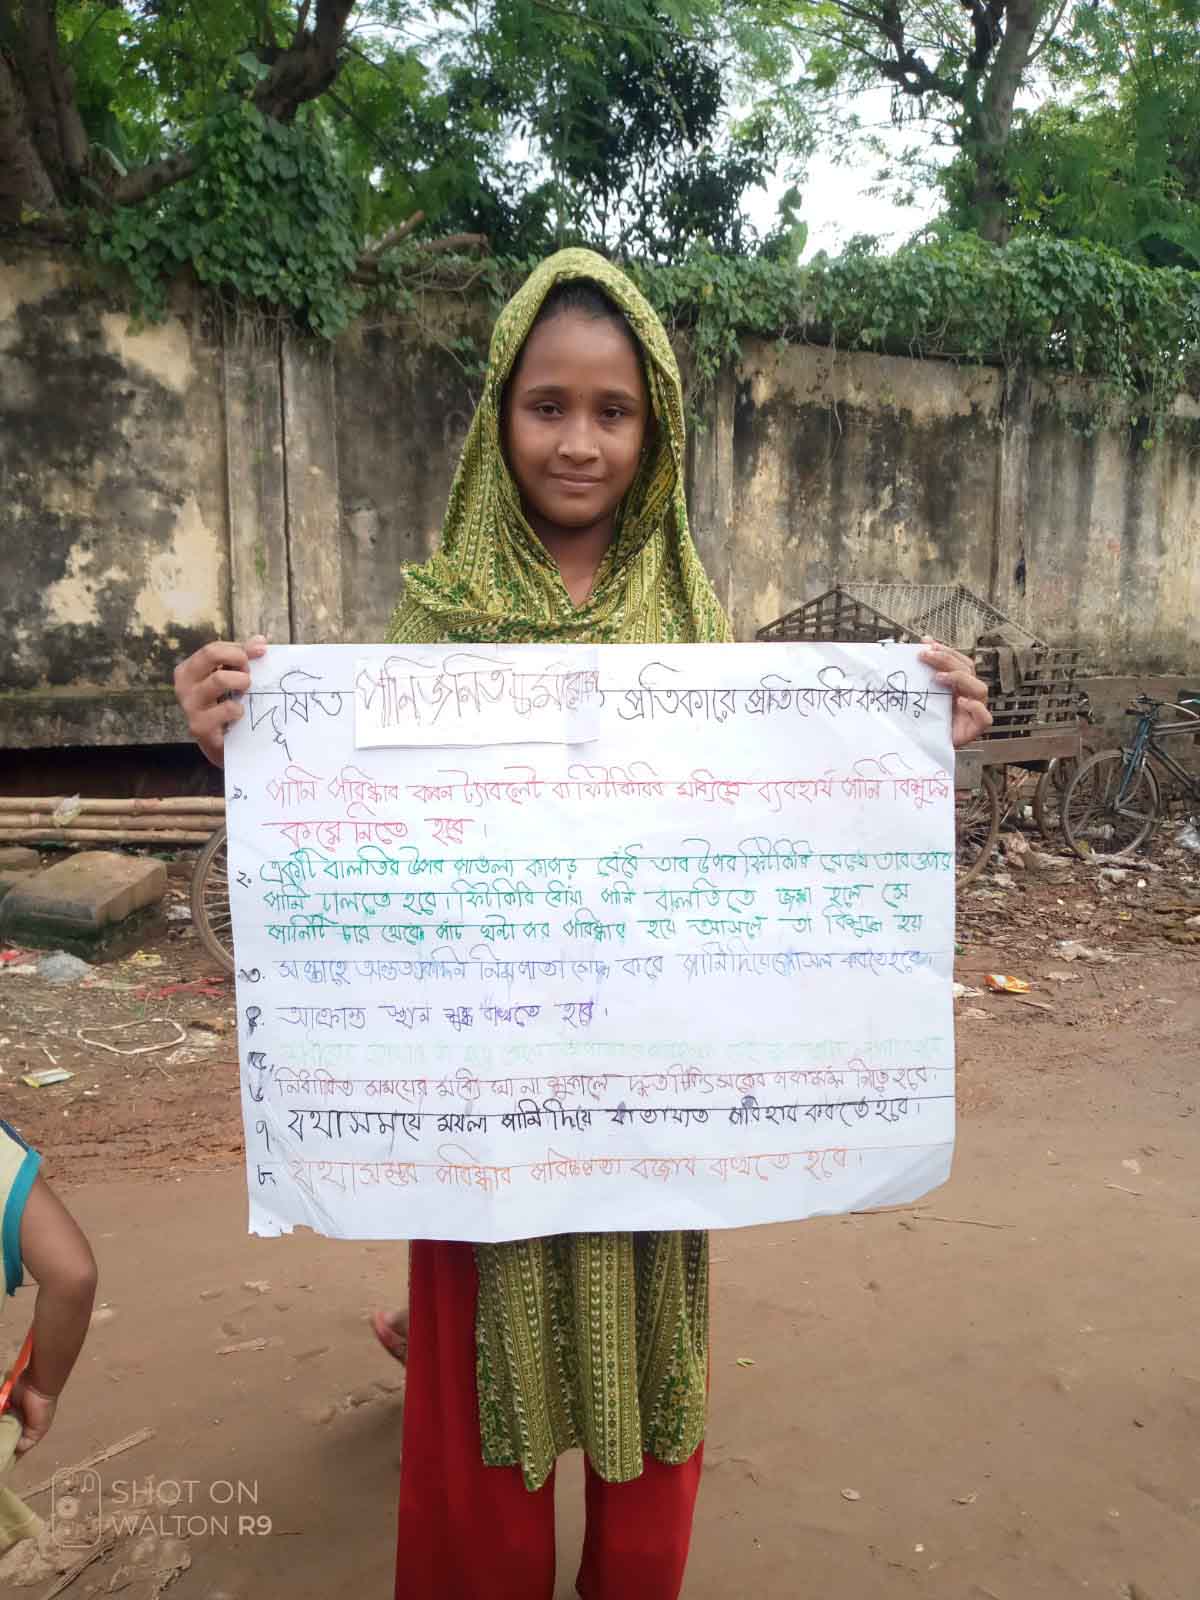 দূষিত পানিজনিত চর্মরোগ প্রতিকারে প্রতিরোধের করনীয়
১. পানি পরিষ্কার করন ট্যাবলেট বা ফিটকিরির মাধ্যিমে ব্যবহার্য পানি বিশুদ্ধ
করে নিতে হবে।
২. একটি বালতির উপর পাতলা কাপড় বেঁধে তার উপর ফিটকিরি রেখে তার ওপর
পানি ঢালতে হবে। ফিটকিরি ধোয়া পানি বালতিতে জমা হলে সে
পানিটি চার থেকে পাঁচ ঘন্টা পর পরিষ্কার হয়ে আসলে তা বিশুদ্ধ হয়
৩. সপ্তাহে অন্তত একদিন নিমপাতা সেদ্ধ করে পানি দিয়ে গোসল করতে হবে।
৪. আক্রান্ত স্থান শুষ্ক রাখতে হবে।
৫.
৬. নির্ধারিত সময়ের মধ্যে ঘা না শুকালে দ্রুত চিকিৎসকের পরামর্শ নিতে হবে।
৭ যথাসময়ে ময়লা পানি দিয়ে যাতায়াত পরিহার করতে হবে।
৮. যথাসম্ভব পরিষ্কার পরিচ্ছন্নতা বজায় রাখতে হবে।
SHOT ON
WALTON R9